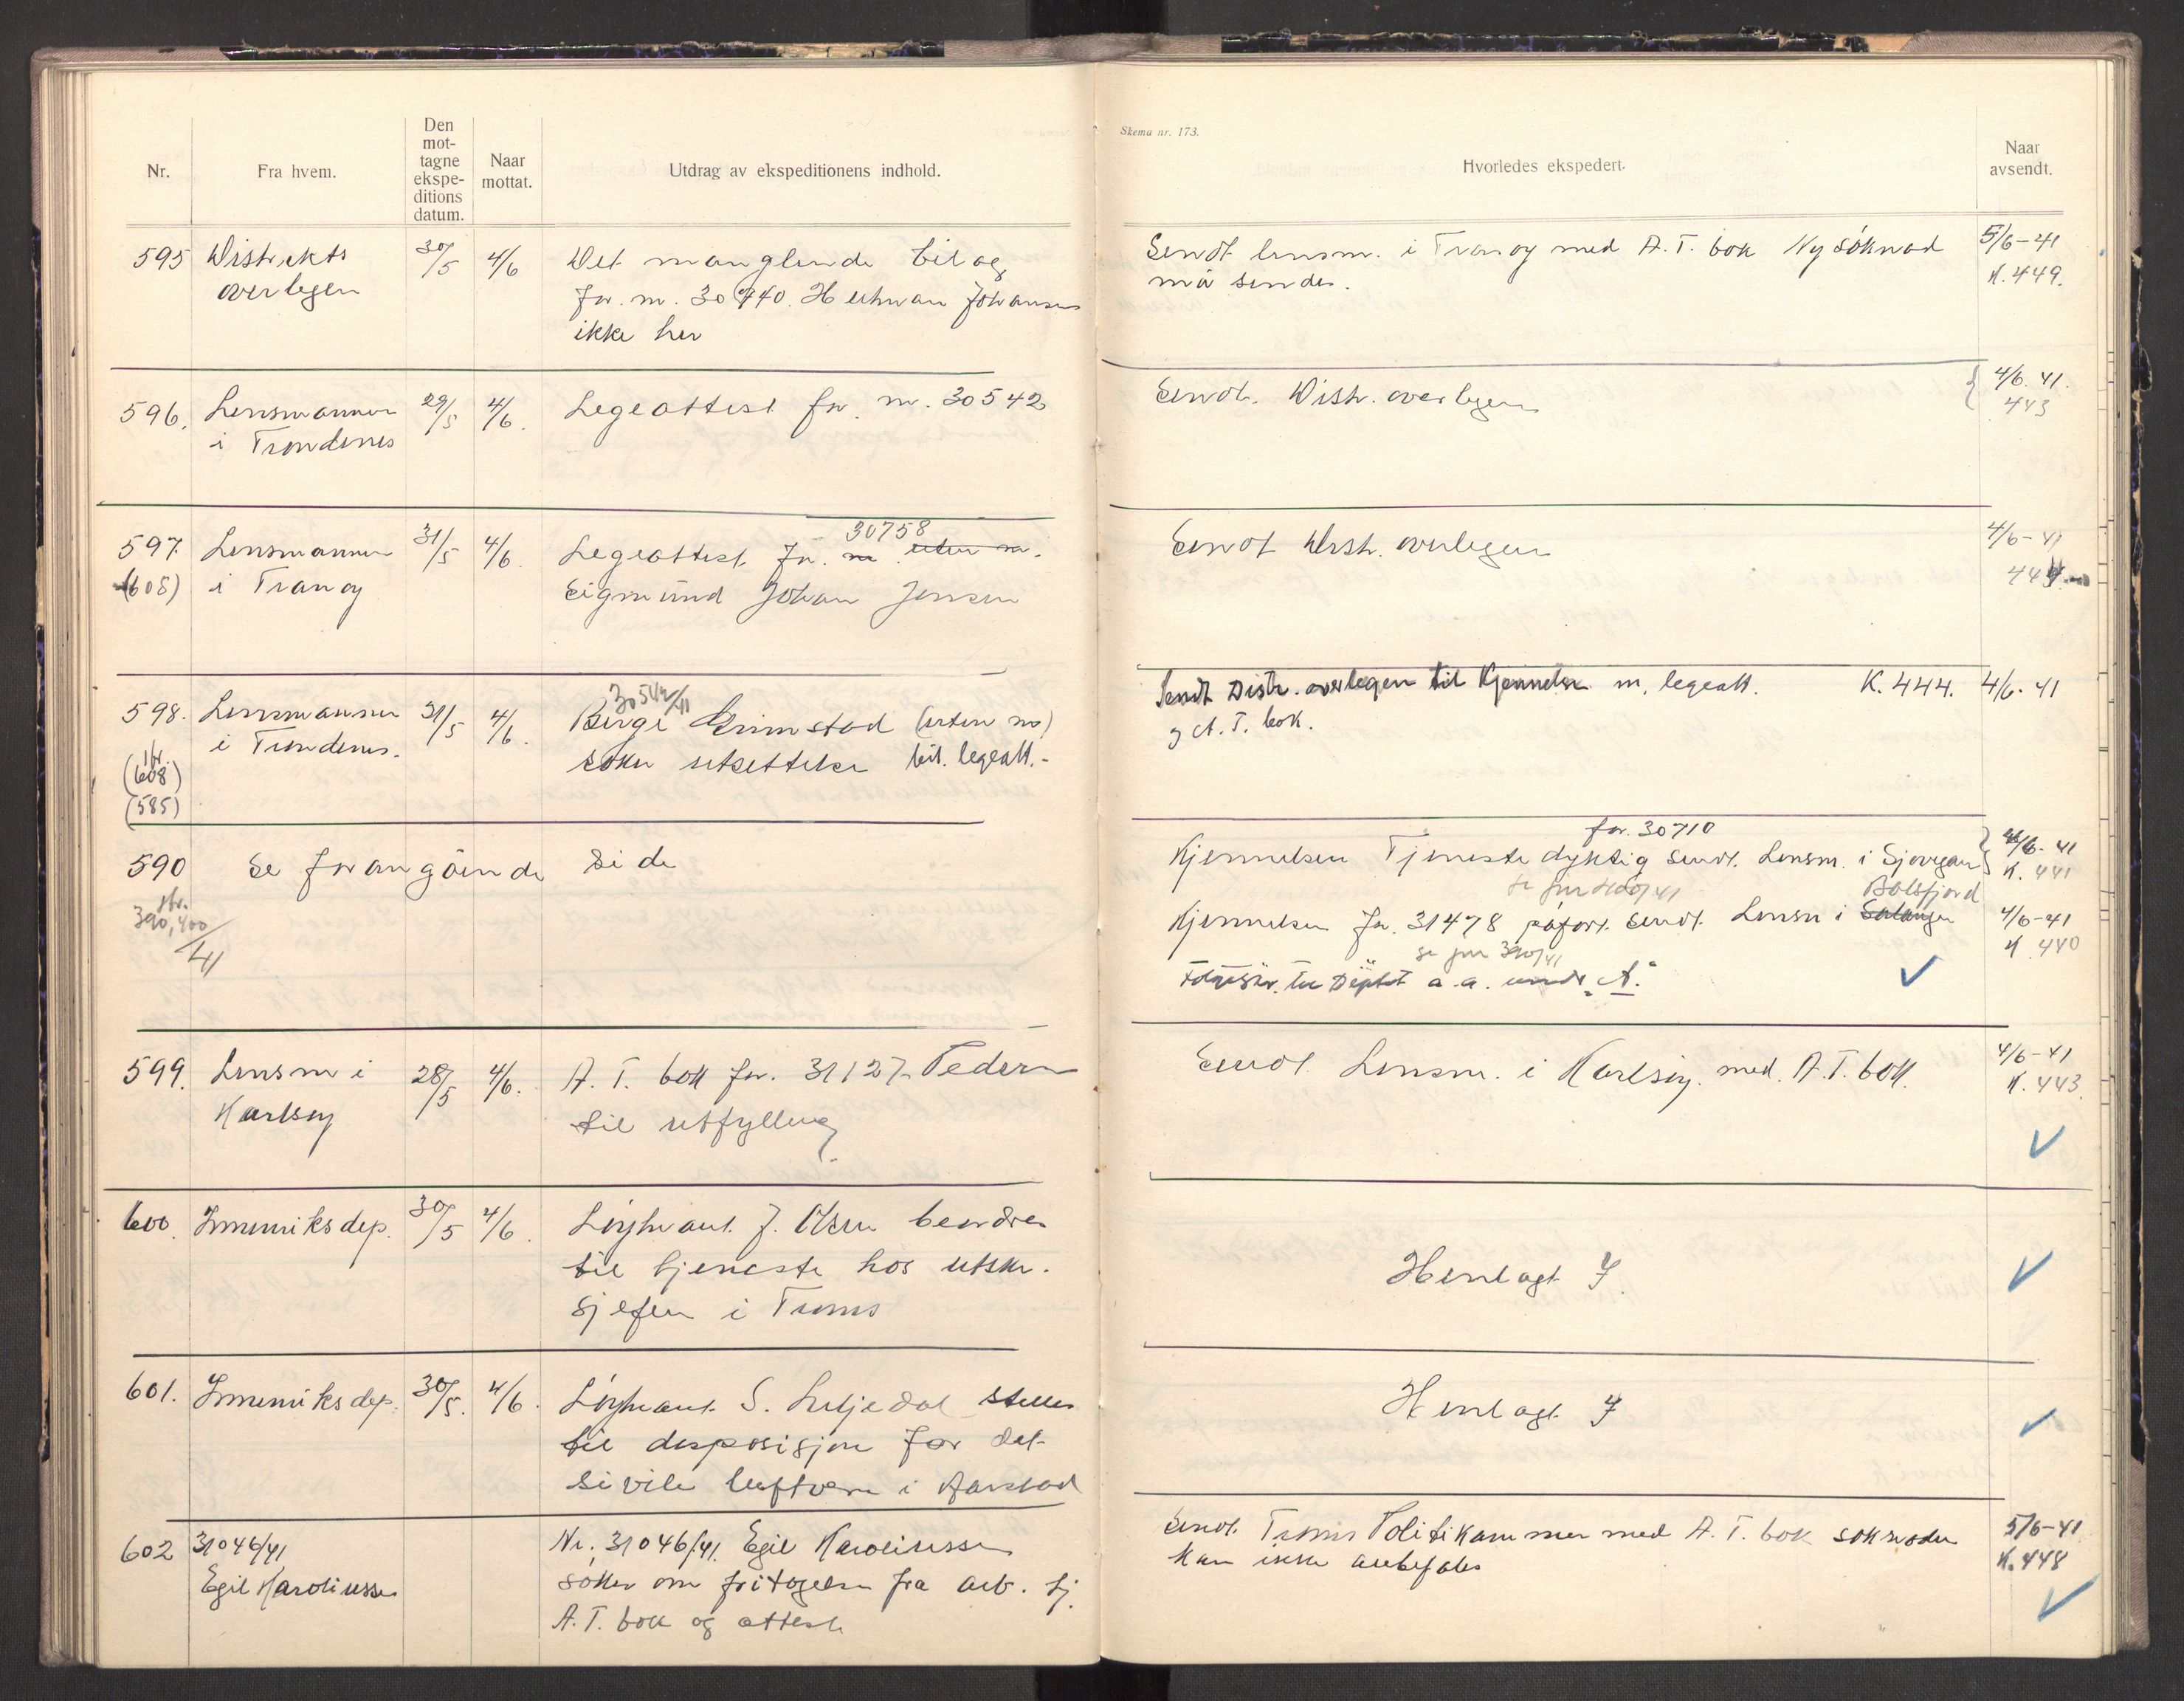 Nr.
Fra hvem.
Den
mot-
tagne
ekspe-
ditions
datum.
Naar
mottat.
Utdrag av ekspeditionens indhold.
595 Distrikts 30/5 4/6 Det manglende bilag
overlegen for nr. 30740. Johansen
ikke her
596. Lensmannen 29/5 4/6. Legeattest for nr. 30542
i Trondenes
30758
597. Lensmannen 31/5 4/6. Legeattest for nr. uten nr.
(605) i Tranøy Sigmund Johan Jensen
30542/41
598. Lensmannen 31/5 4/6. Birge Grimstad (uten nr)
i Trondenes. søker utsettelse bil. legeatt.-
(608)
(585)
590 Se forangående side
str.
390, 400
/41
599. Lensm i 28/5 4/6. A. T. bok for. 31127. Pedersen
Karlsøy til utfylling
600. Innenriksdep. 30/5 4/6. Løytnant J. Olsen beordres
til tjeneste hos utskr.
sjefen i Troms
601. Innenriksdep. 30/5. 4/6. Løytnant S. Liljedal stilles
til disposisjon for det
sivile luftvern i Harstad
602 31046/41 Nr. 31046/41. Egil Karolinssen
Egil Karolinssen søker om fritagelse fra arb. tj.
A. T. bok og attest
Skema nr. 173.
Hvorledes ekspedert.
Naar
avsendt.
Sendt lensm. i Tranøy med A. T. bok Ny søknad 5/6-41
må sendes. K. 449.
Sendt. Distr. overlegen 4/6. 41.
443
Sendt Distr. overlegen 4/6-41
444
Sendt Distr. overlegen til Kjennelse m. legeatt. K. 444. 4/6-41
og A. T. bok.
for. 30710
Kjennelsen Tjenestedyktig sendt. Lensm. i Sjøvegan 4/6-41
K. 441
se jnr 400/41
Balsfjord
Kjennelsen for. 31478 påført. sendt. Lensm i Salangen 4/6-41
K. 440
se jnr 390/41
a. a. under "A."
Sendt Lensm. i Karlsøy. med. A. T. bok. 4/6-41
K. 443.
Henlagt J
Henlagt J
Sendt. Troms Politikammer med A. T. bok søknaden 5/6-41
kan ikke anbefales K. 448